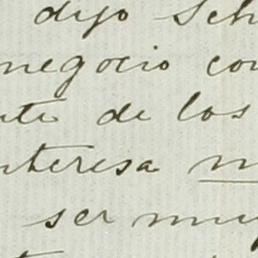 dijo Sch
negocio con
nte de los
nteresa m
ser muy